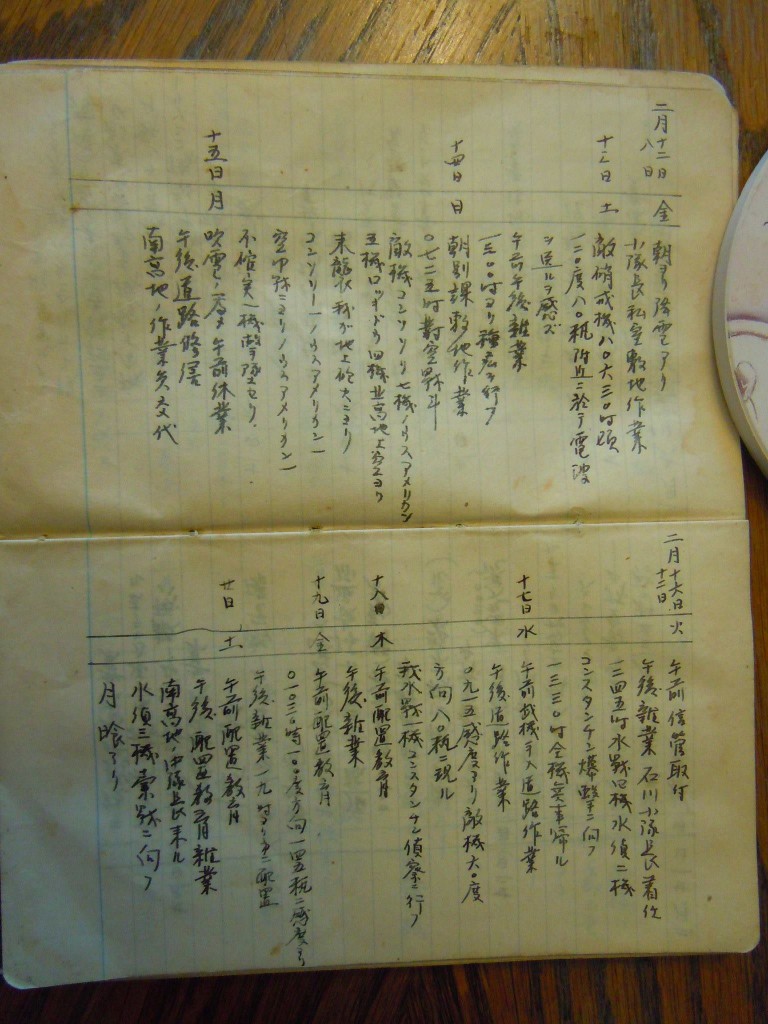 二月十二日 金 朝ヨリ降雪アリ
八日 小隊長私室敷地作業
十三日 土 敵哨戒機八〇六三〇時頃
一二〇度八〇粁附近ニ於テ電波
ヲ逆ルヲ感ズ
午前午後雑業
一三〇〇時ヨリ種痘ヲ行フ
十四日 日 朝別課敷地作業
〇七二五時対空戦斗
敵機コンソリ七機ノースアメリカン
五機ロッキード四機 高地上空ヨリ
来襲 我ガ地上砲火ニヨリ
コンソリ一 ノースアメリカン一
空中戦ニヨリノースアメリカン一
不確実一機撃墜セリ
十五日 月 吹雪ノ為メ午前休業
午後道路修理
南高地ノ作業員交代
二月十六日 火 午前信管取付
十二日 午後雑業 石川小隊長着任
一二四五時水戦四機水偵二機
コンスタンチン爆撃ニ向フ
一三三〇時全機無事帰ル
十七日 水 午前機手入道路作業
午後道路作業
〇九一五感度アリ敵機六〇度
方向八〇粁ニ現ル
我水戦機コンスタンチン偵察ニ行フ
十八日 木 午前配置教育
午後雑業
十九日 金 午前配置教育
〇一〇三〇時一〇〇度方向一四五粁ニ感度アリ
午後雑業一九時ヨリ 配置
廿日 土 午前配置教育
午後配置教育雑業
南高地ノ中隊長来ル
水偵三機索戦ニ向フ
月喰アリ